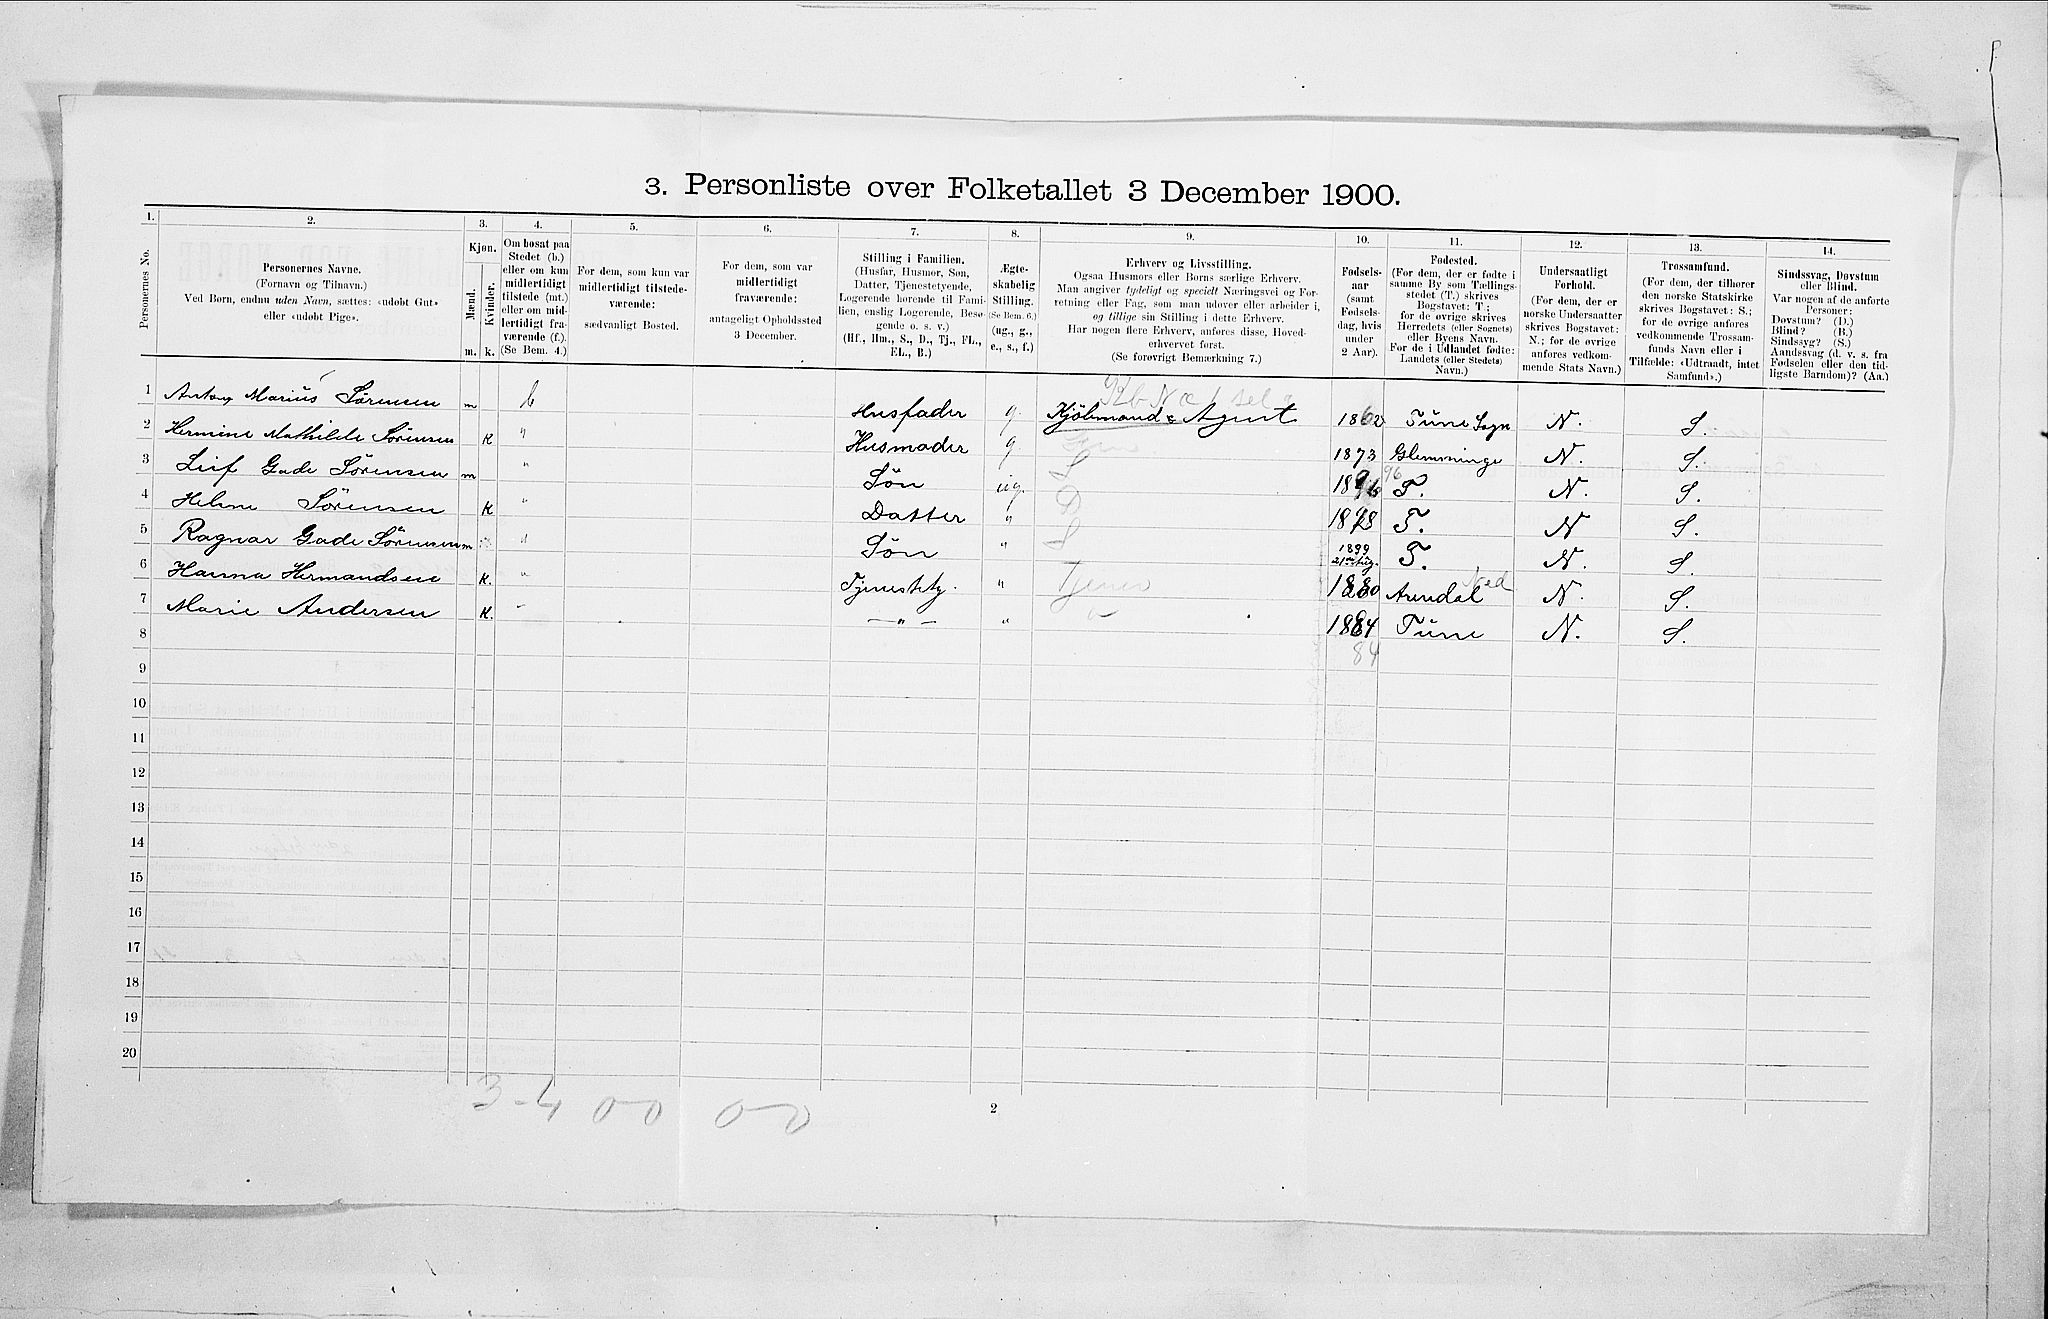 3. Personliste over Folketallet 3 December 1900.
1. 2. 3. 4. 5. 6. 7. 8. 9. 10. 11. 12. 13. 14.
Personernes No.
Personernes Navne.
(Fornavn og Tilnavn.)
Ved Børn, endnu uden Navn, sættes: «udøbt Gut»
eller «udøbt Pige».
Kjøn.
Mænd.
Kvinder.
m. k.
Om bosat paa
Stedet (b.)
eller om kun
midlertidigt
tilstede (mt.)
eller om mid-
lertidigt fra-
værende (f.).
(Se Bem. 4.)
For dem, som kun var
midlertidigt tilstede-
værende:
sædvanligt Bosted.
For dem, som var
midlertidigt
fraværende:
antageligt Opholdssted
3 December.
Stilling i Familien.
(Husfar, Husmor, Søn,
Datter, Tjenestetyende,
Logerende hørende til Fami-
lien, enslig Logerende, Besø-
gende o. s. v.)
(Hf., Hm., S., D., Tj., FL.,
EL., B.)
Ægte-
skabelig
Stilling.
(Se Bem. 6.)
(ug., g.,
e., s., f.)
Erhverv og Livsstilling.
Ogsaa Husmors eller Børns særlige Erhverv.
Man angiver tydeligt og specielt Næringsvei og For-
retning eller Fag, som man udøver eller arbeider i,
og tillige sin Stilling i dette Erhverv.
Har nogen flere Erhverv, anføres disse, Hoved-
erhvervet først.
(Se forøvrigt Bemærkning 7.)
Fødsels-
aar
(samt
Fødsels-
dag, hvis
under
2 Aar).
Fødested.
(For dem, der er fødte i
samme By som Tællings-
stedet (T.) skrives
Bogstavet: T;
for de øvrige skrives
Herredets (eller Sognets)
eller Byens Navn.
For de i Udlandet fødte:
Landets (eller Stedets)
Navn.)
Undersaatligt
Forhold.
(For dem, der er
norske Undersaatter
skrives Bogstavet:
N.; for de øvrige
anføres vedkom-
mende Stats Navn.)
Trossamfund.
(For dem, der tilhører
den norske Statskirke
skrives Bogstavet: S.;
for de øvrige anføres
vedkommende Trossam-
funds Navn eller i
Tilfælde: «Udtraadt, intet
Samfund».)
Sindssvag, Døvstum
eller Blind.
Var nogen af de anførte
Personer:
Døvstum? (D.)
Blind? (B.)
Sindssyg? (S.)
Aandssvag (d. v. s. fra
Fødselen eller den tid-
ligste Barndom)? (Aa.)
1 Anton Marius Sørensen m b Husfader g. Kjöbmand & Agent 1862 Tune Sogn N. S.
2 Hermine Mathilde Sørensen K " Husmoder g. 1873 Glemminge N. S.
3 Leif Gade Sørensen m " Søn ug. S 1896 96 T. N. S.
4 Helene Sørensen K " Datter " D 1898 T. N S.
5 Ragnar Gade Sørensen m " Søn " S 1899 21 Aug. T. N. S.
6 Hanna Hermandsen K. " Tjenestetj. " Tjener 1880 Arendal N. S.
7 Marie Andersen K. " — " — " 1884 Tune N. S.
84
8
9
10
11
12
13
14
15
16
17
18
19
20
3-4 0 0 0 0
2